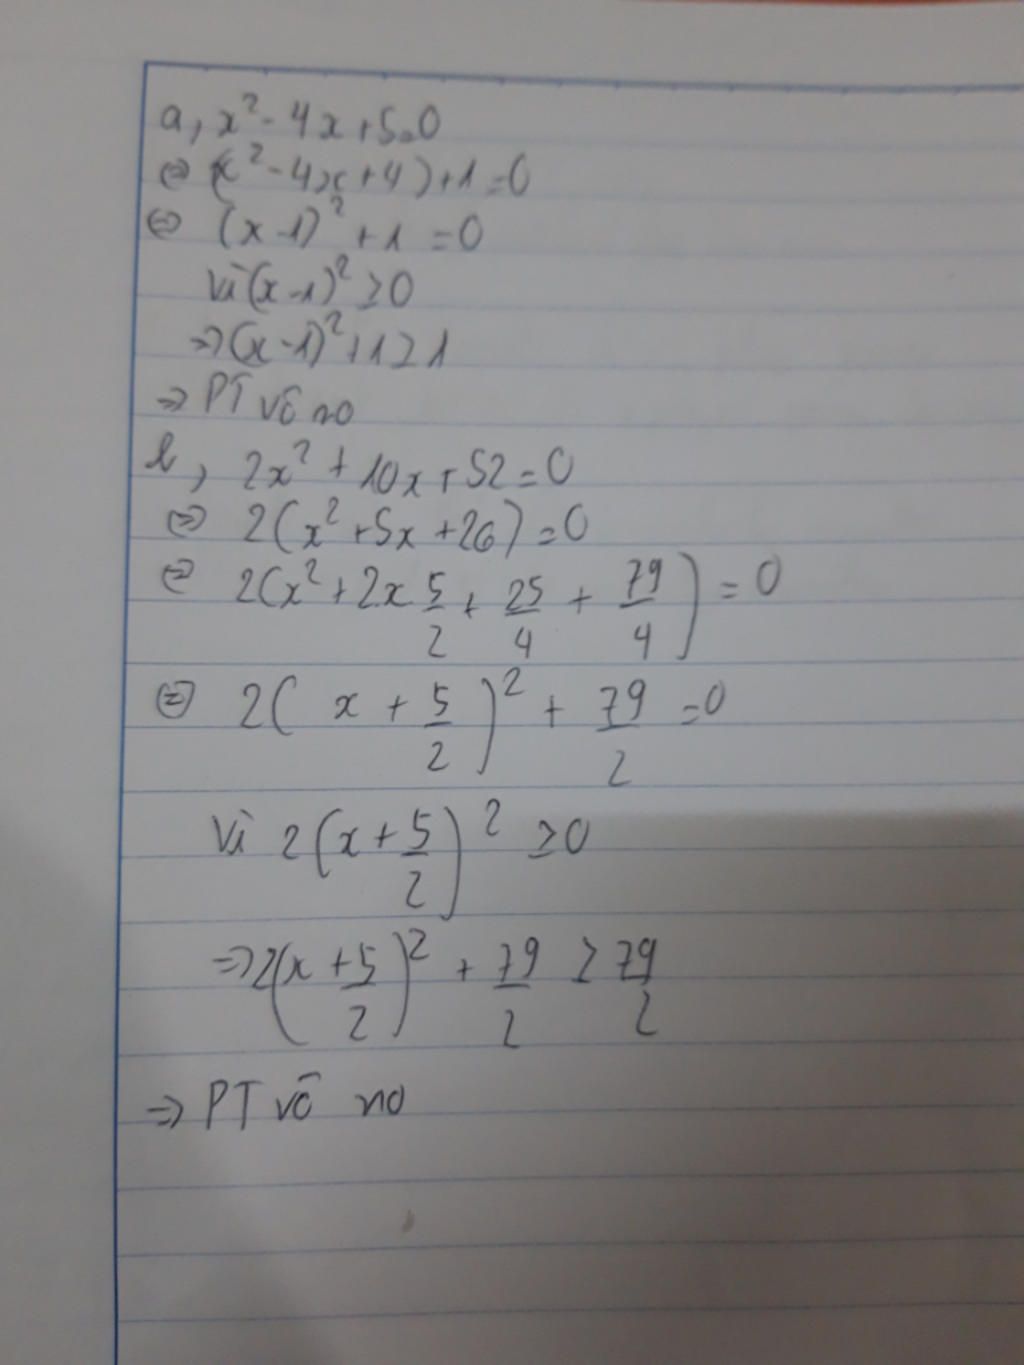 a, x² - 4x + 5 = 0
⇔ (x² - 4x + 4) + 1 = 0
⇔ (x - 1)² + 1 = 0
Vì (x - 1)² ≥ 0
⇒ (x - 1)² + 1 ≥ 1
⇒ PT vô no
b, 2x² + 10x + 52 = 0
⇔ 2(x² + 5x + 26) = 0
⇔ 2(x² + 2x 5/2 + 25/4 + 79/4) = 0
⇔ 2(x + 5/2)² + 79/2 = 0
Vì 2(x + 5/2)² ≥ 0
⇒ 2(x + 5/2)² + 79/2 ≥ 79/2
⇒ PT vô no